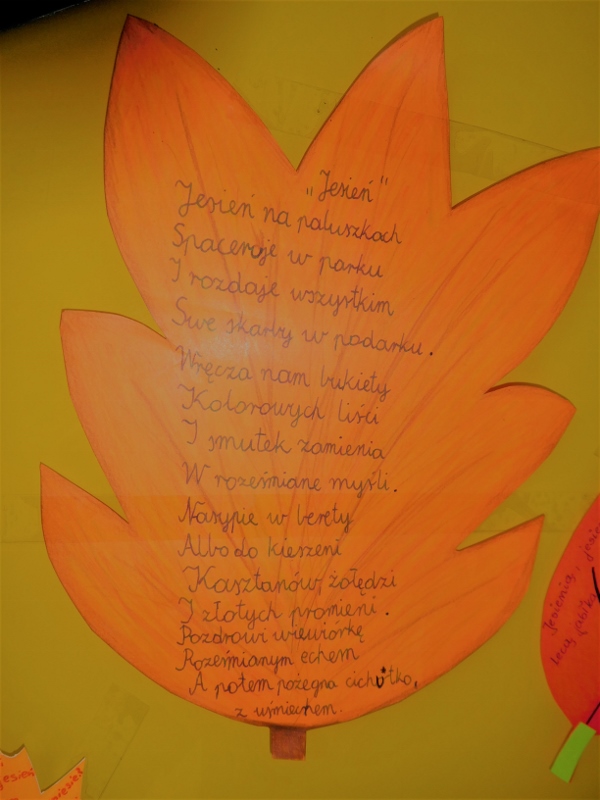 „Jesień”
Jesień na paluszkach
Spaceruje w parku
I rozdaje wszystkim
Swe skarby w podarku.
Wręcza nam bukiety
Kolorowych liści
I smutek zamienia
W roześmiane myśli.
Nasypie w berety
Albo do kieszeni
Kasztanów żołędzi
I złotych promieni.
Pozdrowi wiewiórkę
Roześmianym echem
A potem pożegna cichutko,
z uśmiechem.
Jesienią, jesie
jesień